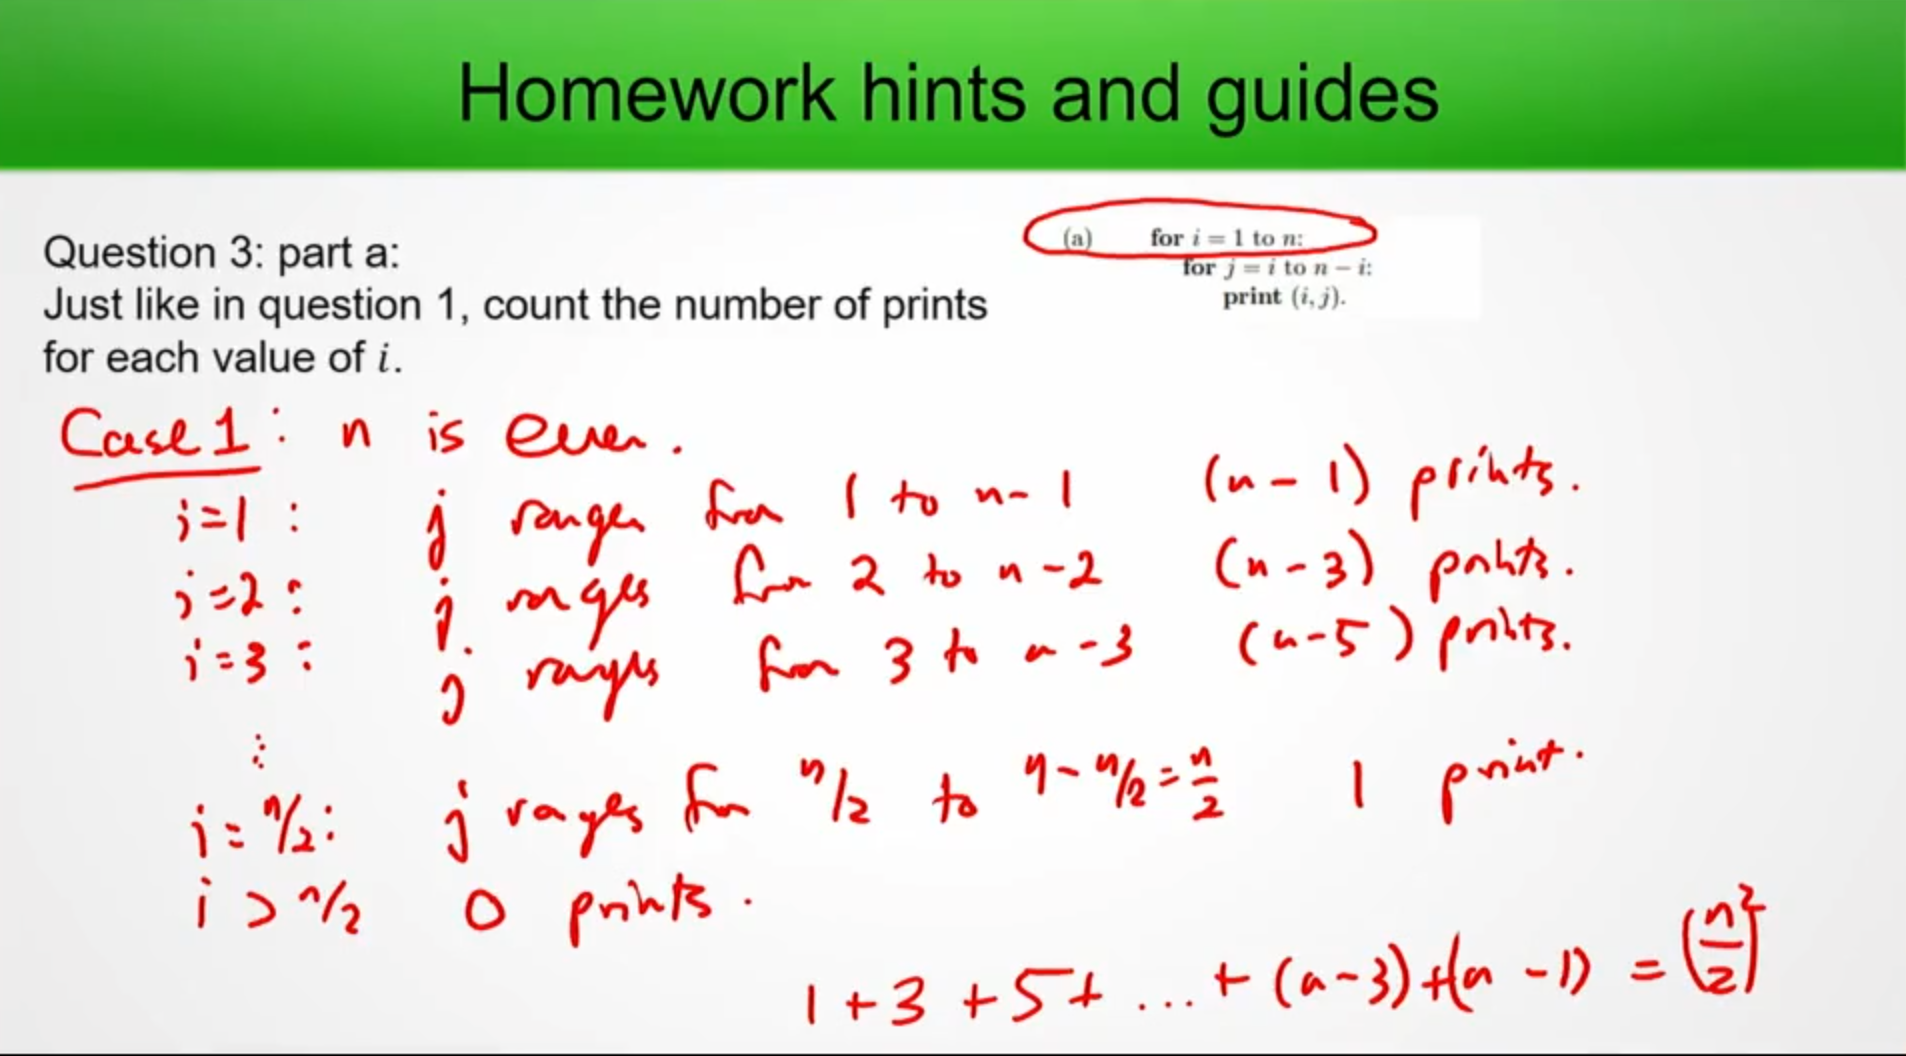 Homework hints and guides
Question 3: part a:
Just like in question 1, count the number of prints
for each value of i.
(a) for i = 1 to n:
for j = i to n − i:
print (i, j).
Case 1: n is even.
i=1: j ranges from 1 to n-1 (n-1) prints.
i=2: j ranges from 2 to n-2 (n-3) prints.
i=3: j ranges from 3 to n-3 (n-5) prints.
⋮
i=n/2: j ranges from n/2 to n-n/2=n/2 1 print.
i>n/2 0 prints.
1+3+5+...+(n-3)+(n-1) = (n/2)²